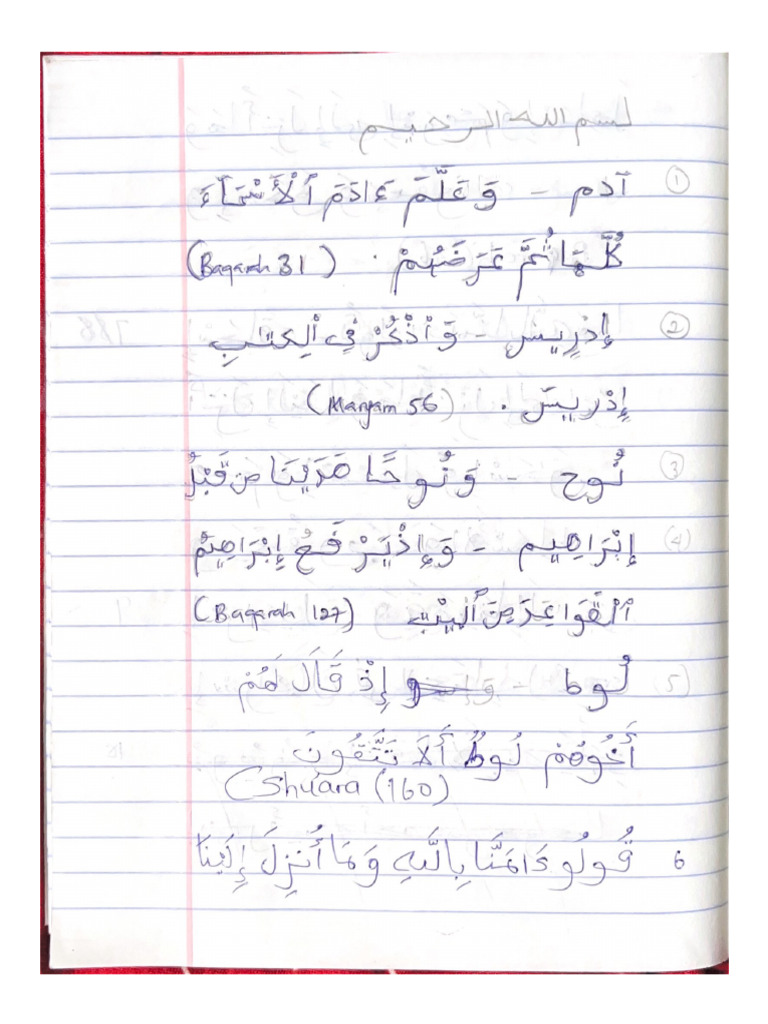 بسم الله الرحيم
① آدم - وَعَلَّمَ ءَادَمَ ٱلْأَسْمَآءَ
كُلَّهَا ثُمَّ عَرَضَهُمْ . (Baqarah 31)
② إِدْرِيس - وَٱذْكُرْ فِي ٱلْكِتَٰبِ
إِدْرِيسَ . (Maryam 56)
③ نُوح - وَنُوحًا هَدَيْنَا مِن قَبْلُ
④ إِبْرَاهِيم - وَإِذْ يَرْفَعُ إِبْرَاهِيمُ
ٱلْقَوَاعِدَ مِنَ ٱلْبَيْتِ (Baqarah 127)
5) لُوط - إِذْ قَالَ لَهُمْ
أَخُوهُمْ لُوطٌ أَلَا تَتَّقُونَ
(Shu'ara (160)
6 قُولُوا ءَامَنَّا بِاللَّهِ وَمَا أُنزِلَ إِلَيْنَا